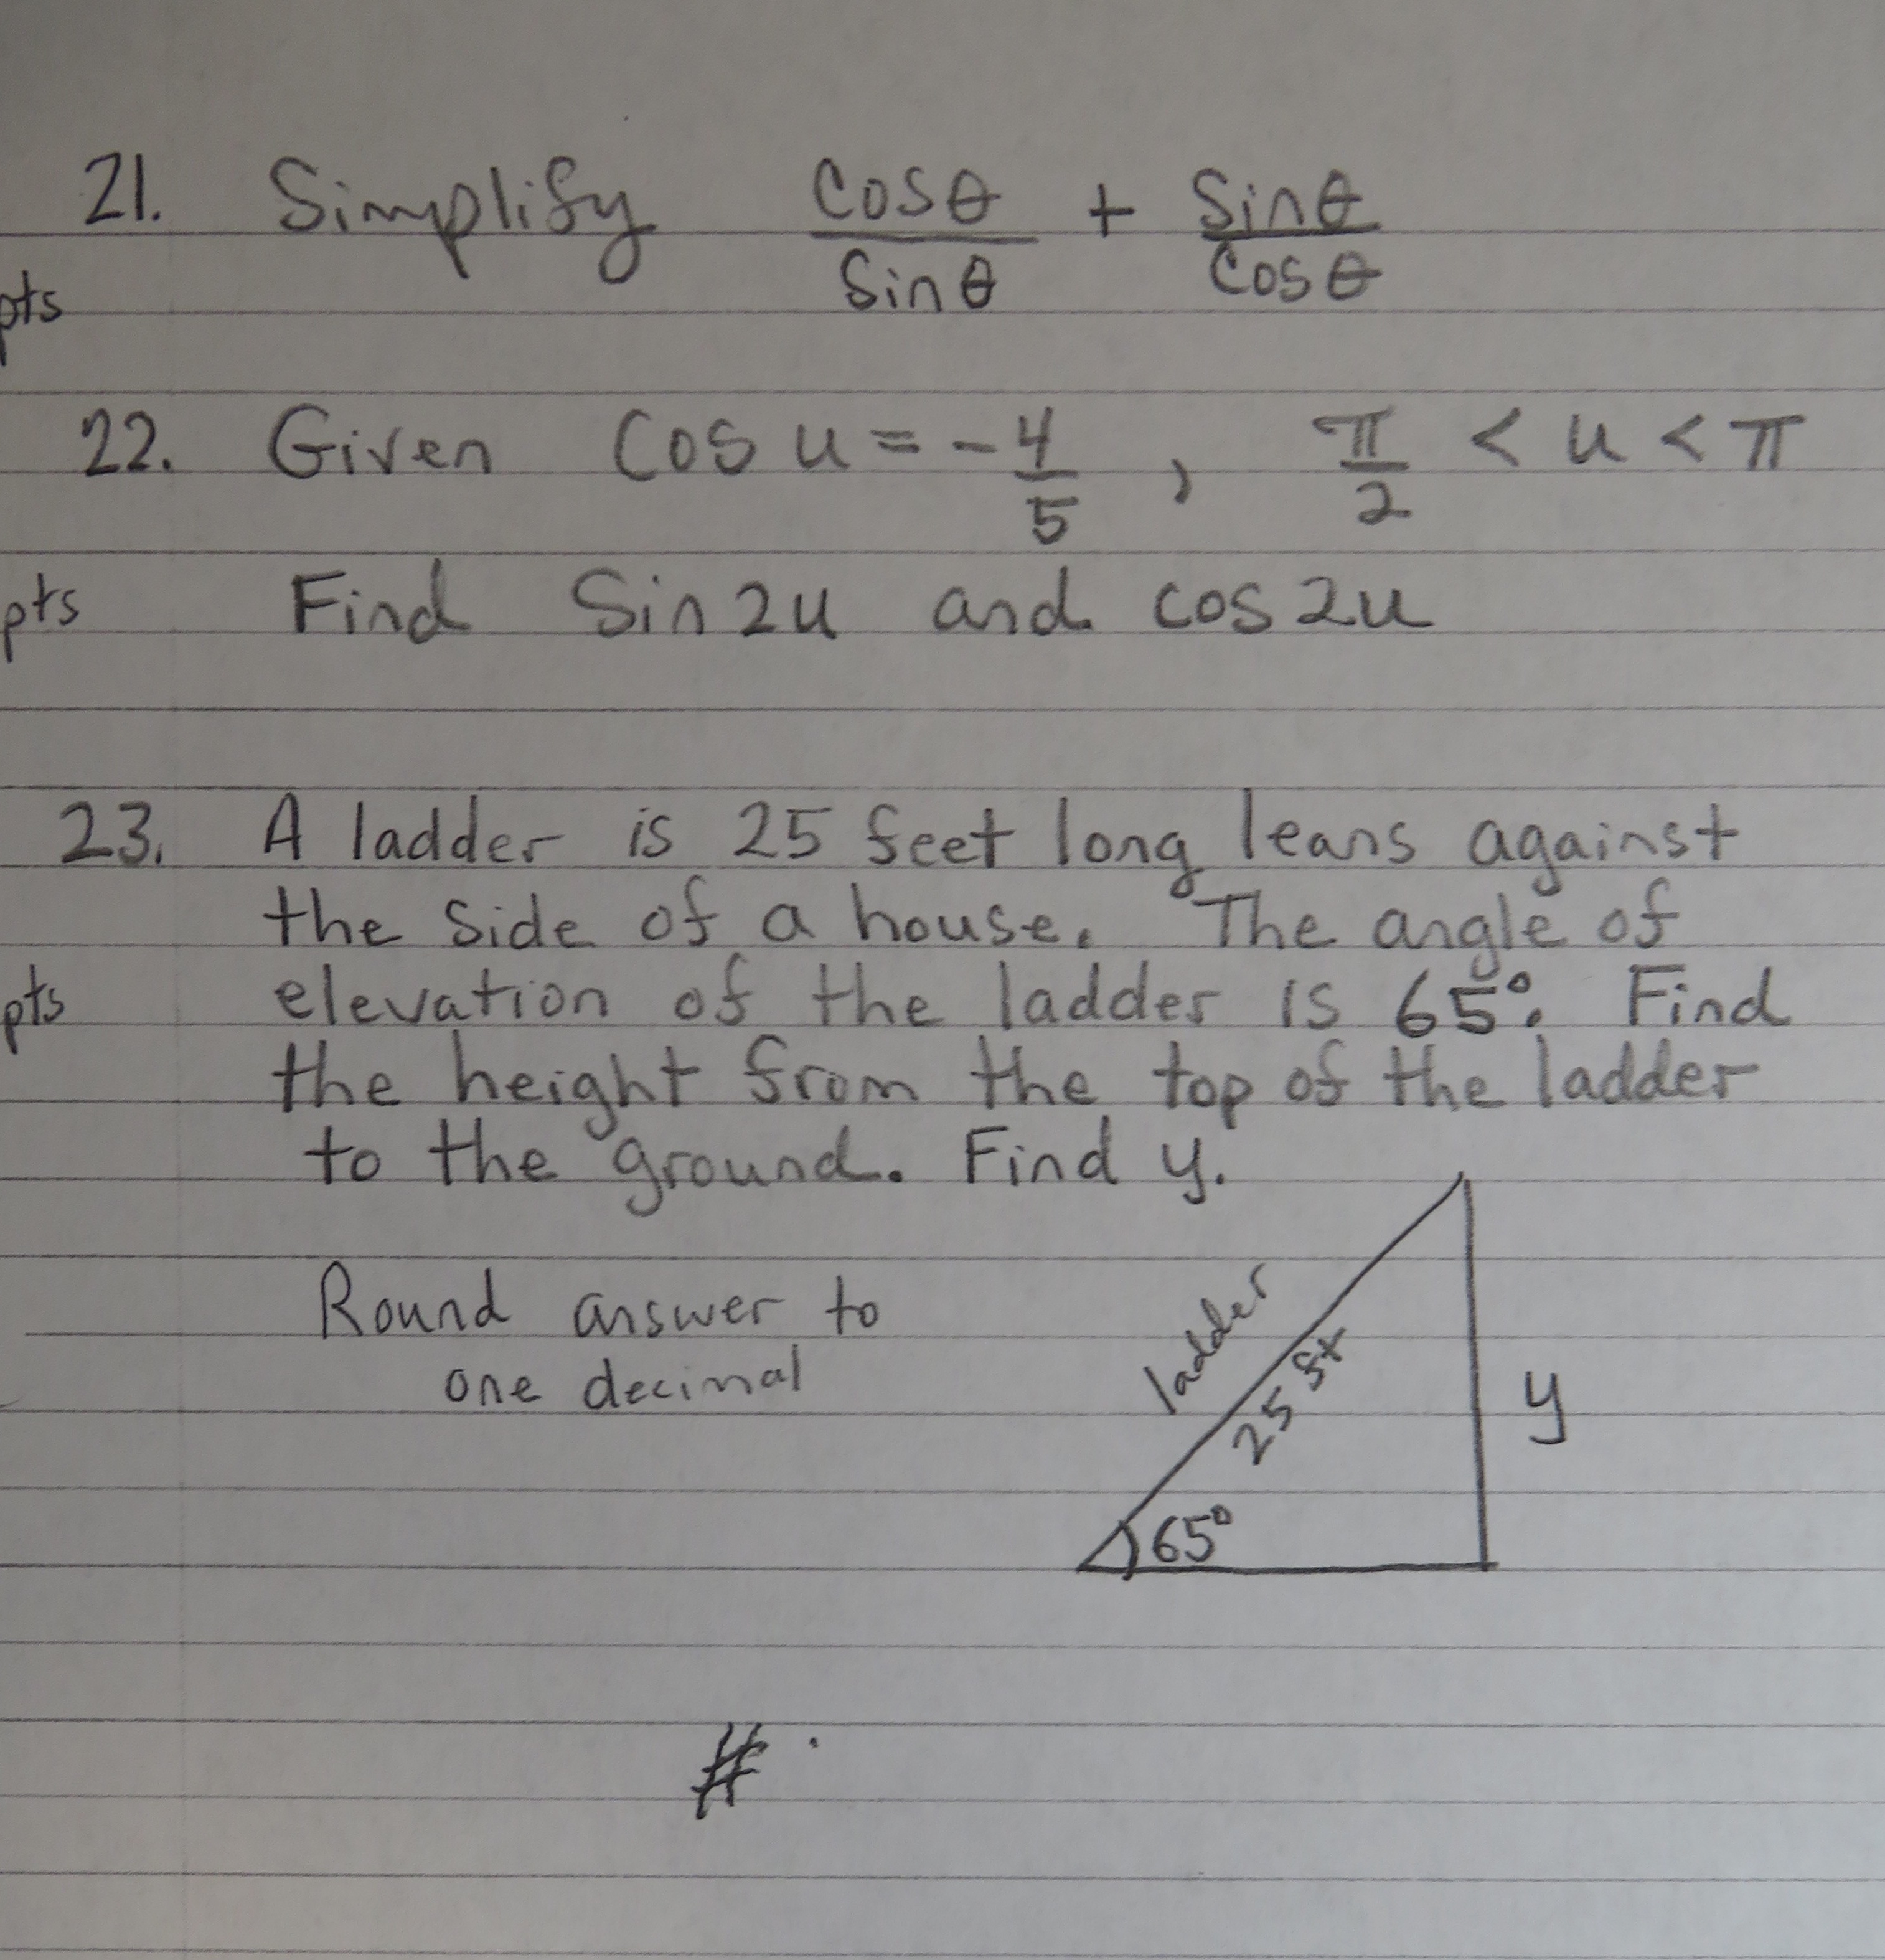 21. Simplify cosθ/sinθ + sinθ/cosθ
pts
22. Given cos u = -4/5 , π/2 < u < π
pts Find sin2u and cos2u
23. A ladder is 25 feet long leans against
the side of a house. The angle of
pts elevation of the ladder is 65°. Find
the height from the top of the ladder
to the ground. Find y.
Round answer to
one decimal
ladder
25 ft
y
65°
#